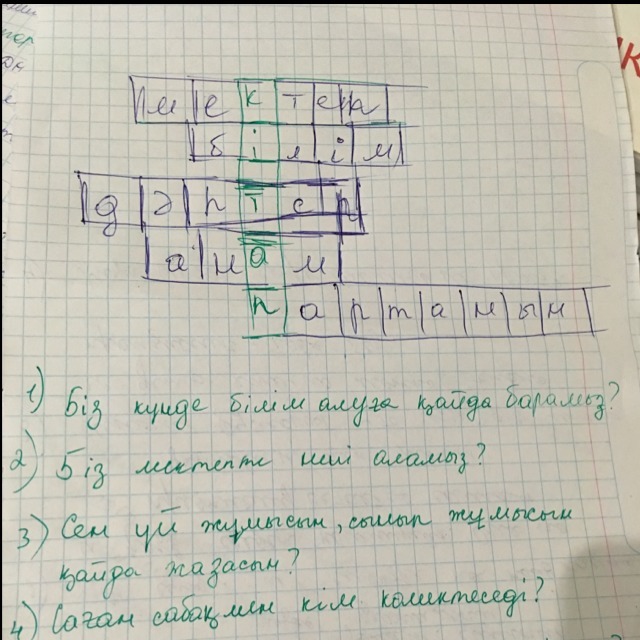 мектеп
білім
дәптер
анам
партаның
1) Біз күнде білім алуға қайда барамыз?
2) Біз мектепте нені аламыз?
3) Сен үй жұмысын, сынып жұмысын
қайда жазасың?
4) Саған сабақпен кім көмектеседі?